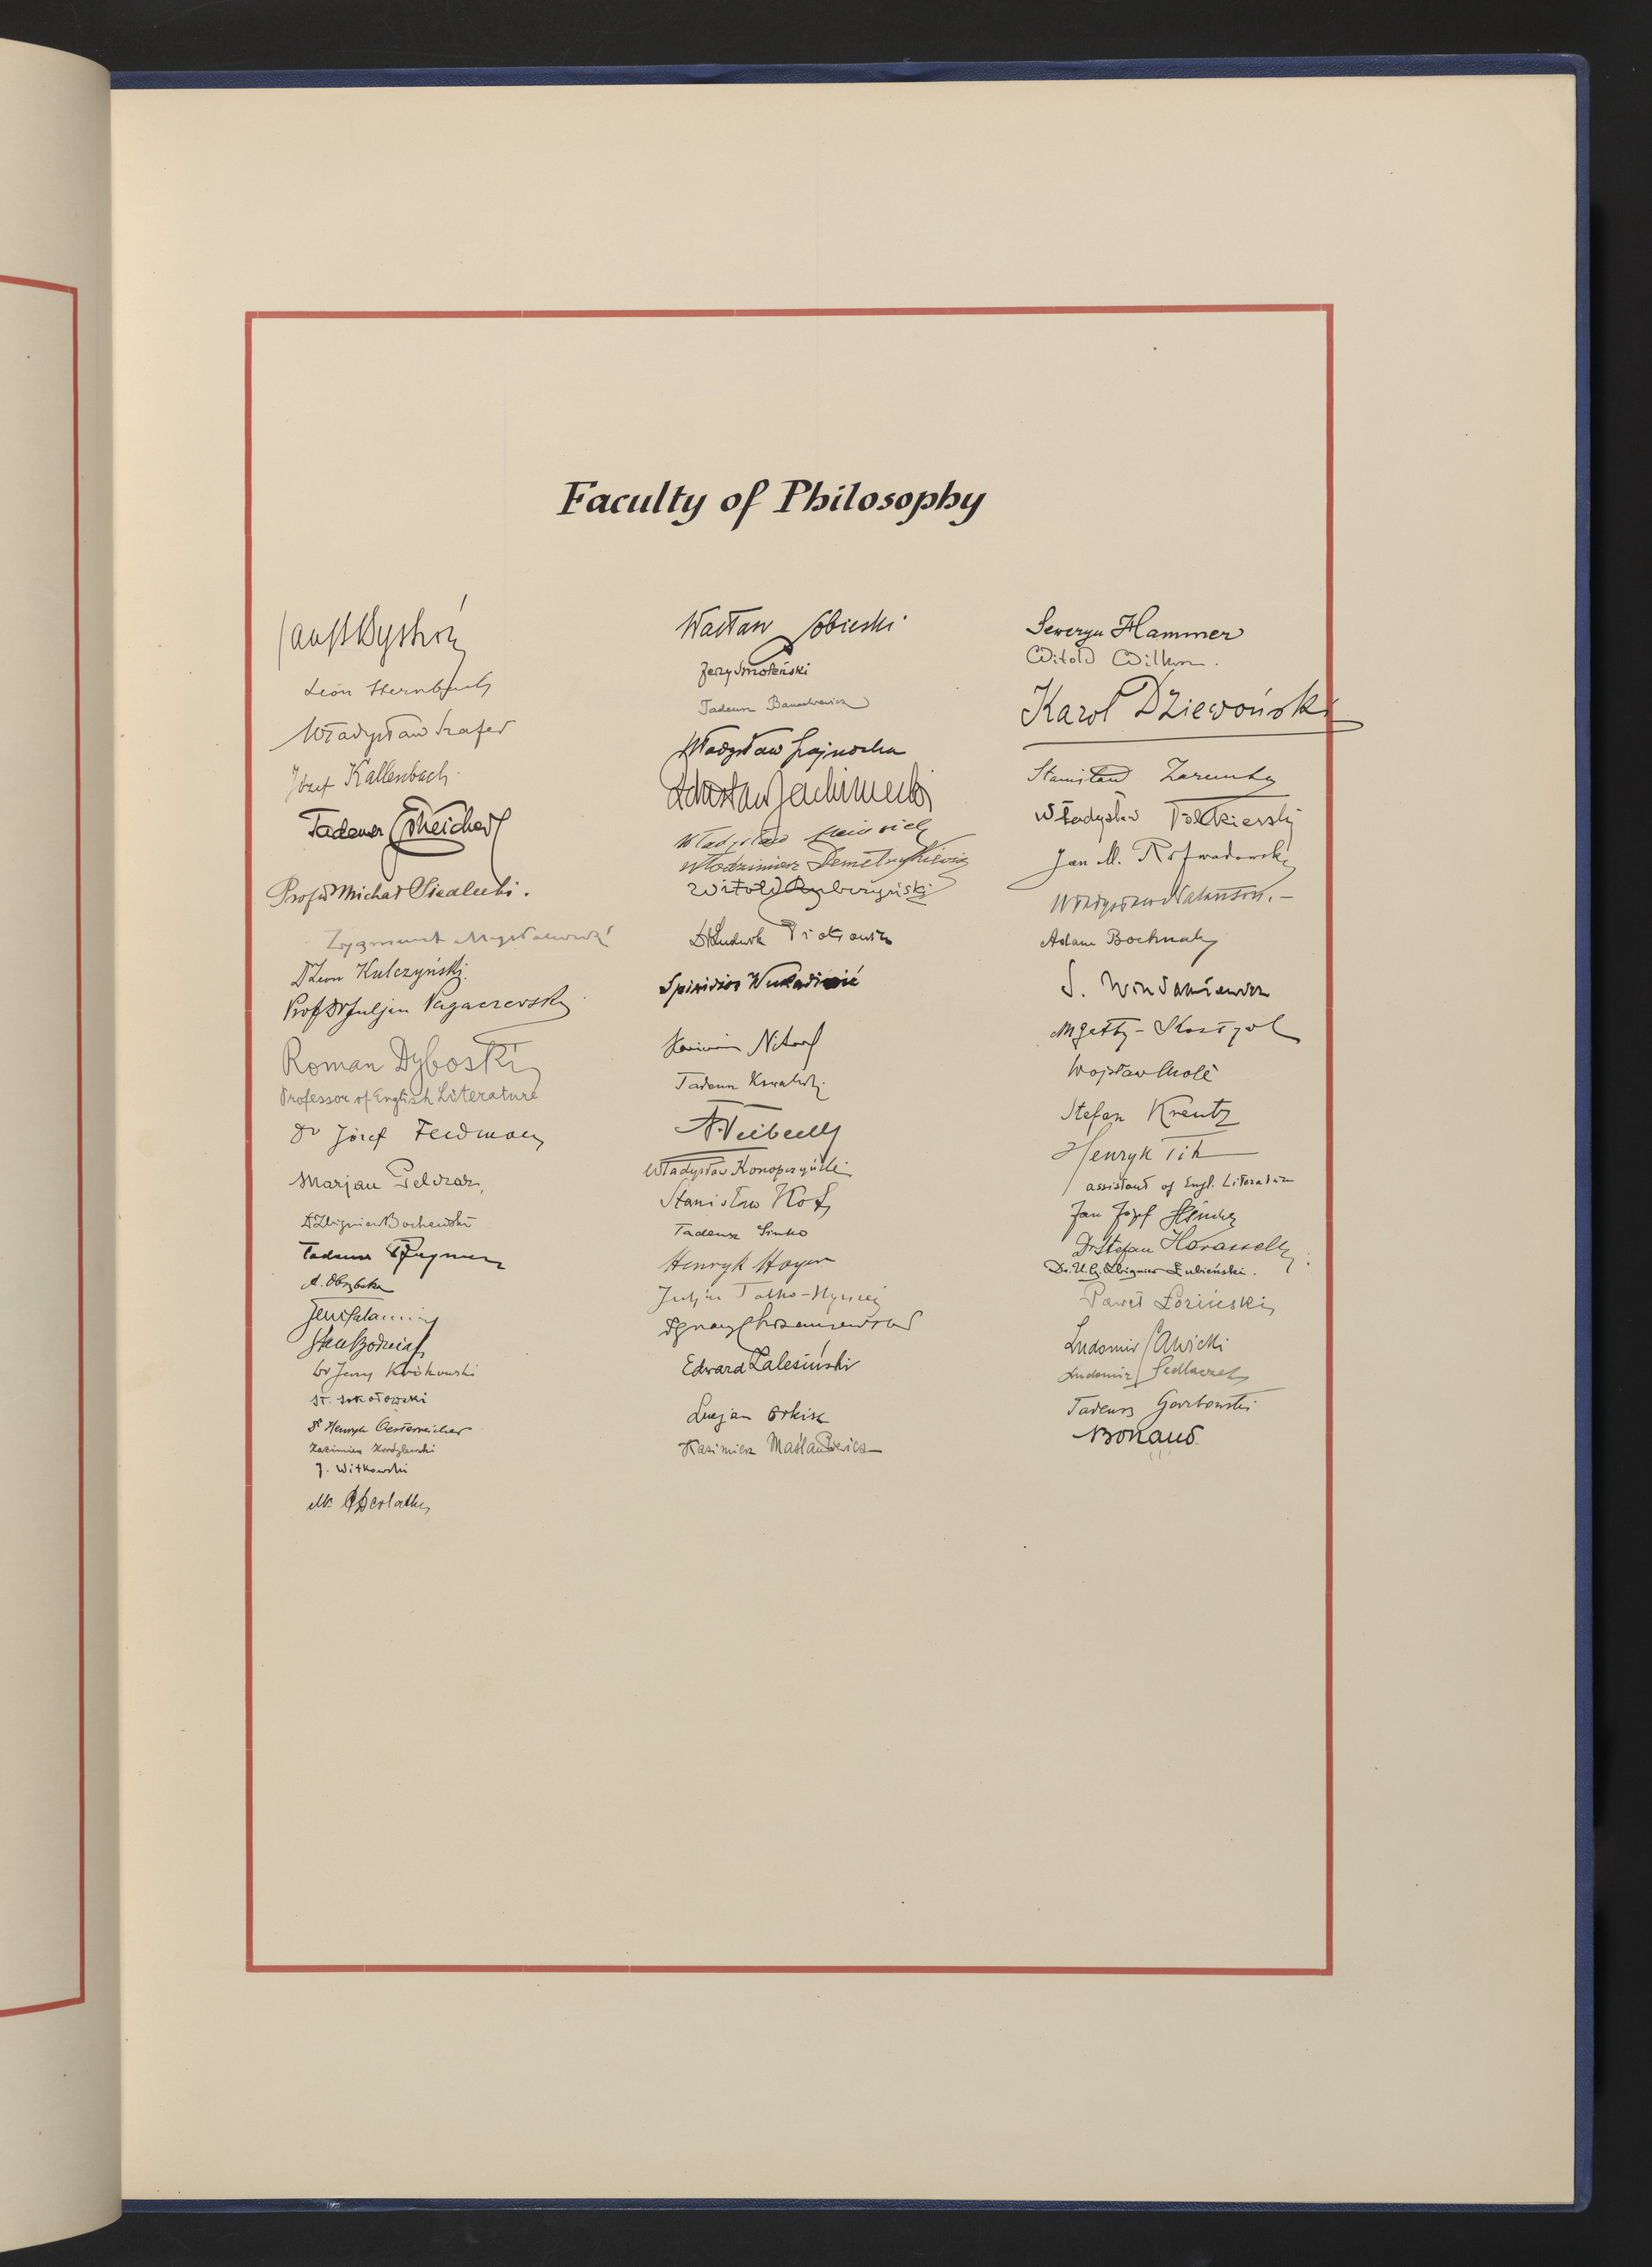 Faculty of Philosophy
Jan St Bystroń
Leon Sternbach
Władysław Szafer
Józef Kallenbach
Tadeusz Estreicher
Prof Dr Michał Siedlecki.
Zygmunt Mysłakowski
Dr Leon Kulczyński
Prof Dr Juljan Pagaczewski
Roman Dyboski
Professor of English Literature
Dr Józef Feldman
Marjan Geldzar
Dr Zbigniew Bocheński
Tadeusz
Stan
Dr Jerzy Krókowski
St. Sokołowski
Dr Henryk Oesterreicher
Kazimierz Kordylewski
J. Witkowski
Wacław Sobieski
Jerzy Smoleński
Tadeusz Banachiewicz
Władysław Szajnocha
Zdzisław Jachimecki
Władysław Heinrich
Włodzimierz Demetrykiewicz
Witold Rybczyński
Dr Ludwik Piotrowicz
Spiridion Wukadinović
Kazimierz Nitsch
Tadeusz Kowalski
Władysław Konopczyński
Stanisław Kot
Tadeusz Sinko
Henryk Hoyer
Juljan Talko-Hryncewicz
Ignacy Chrzanowski
Edward Zalesiński
Lucjan Orkisz
Kazimierz Maślankiewicz
Seweryn Hammer
Witold Wilkosz.
Karol Dziewoński
Stanisław Zaremba
Władysław Folkierski
Jan M. Rozwadowski
Władysław Natanson.-
Adam Bochnak
S. Windakiewicz
Wojsław Molè
Stefan Kreutz
Henryk
assistant of Engl. Literature
Jan Józef
Dr Stefan Harassek
Dr. U. J. Zbigniew Łubieński.
Paweł Łoziński
Ludomir Sawicki
Ludomir Sedlaczek
Tadeusz Garbowski
Bonaud